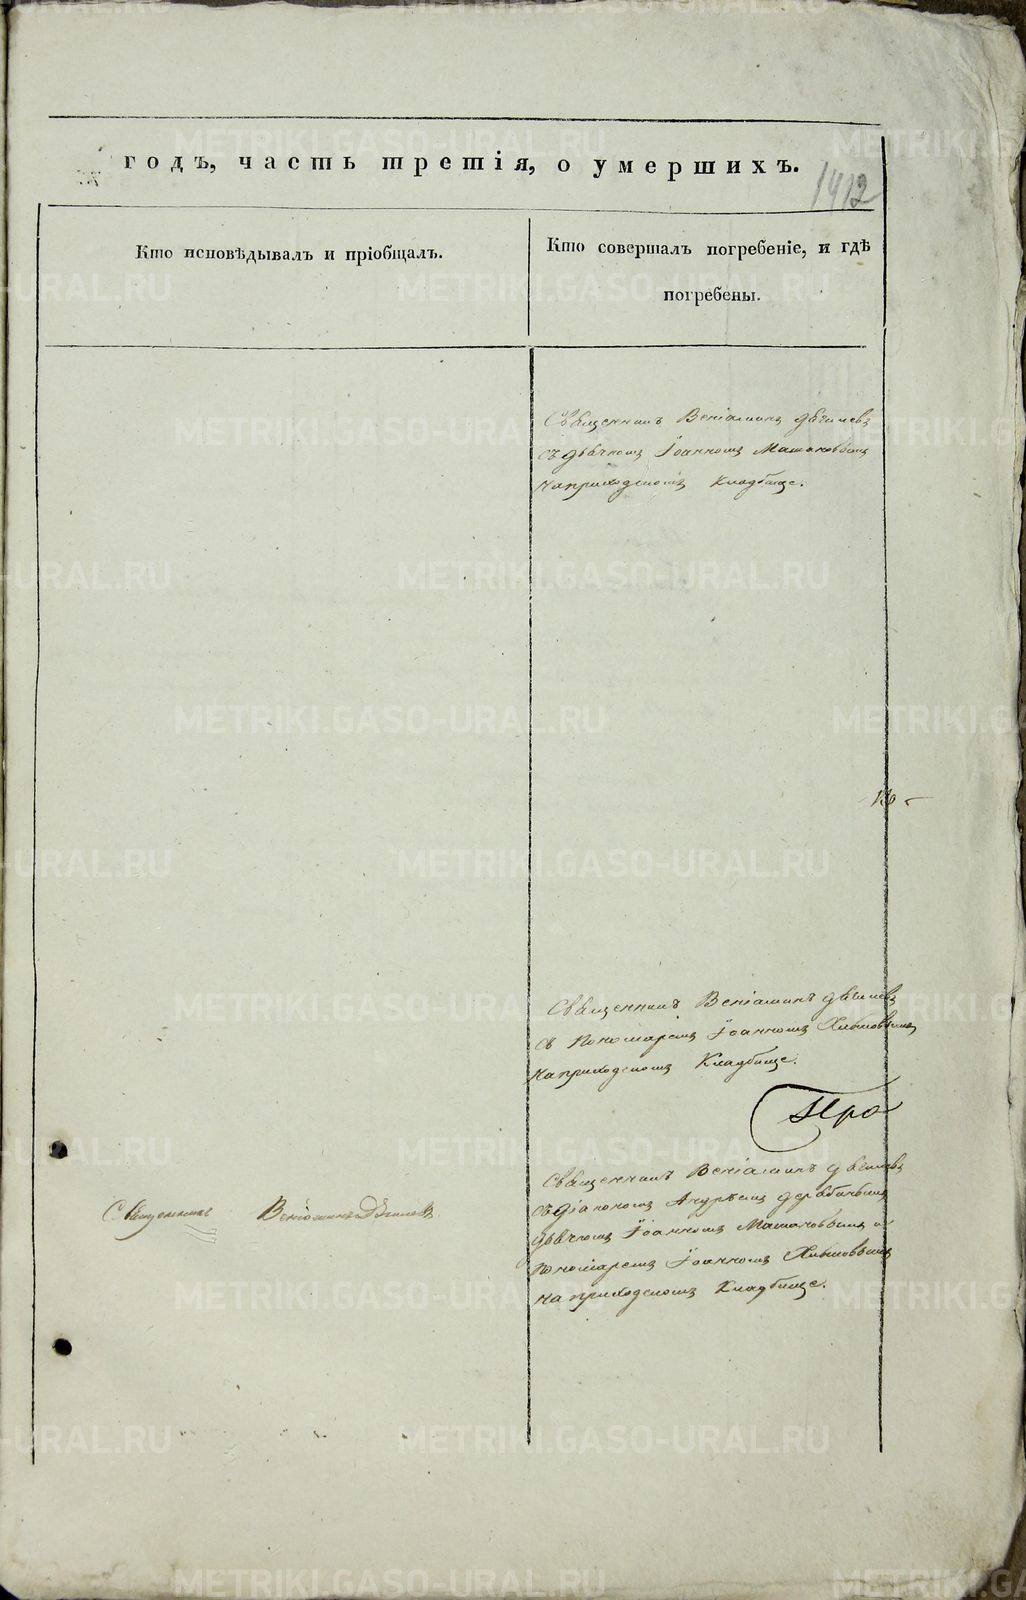 годъ, часть третія, о умершихъ.
1412
Кто исповѣдывалъ и пріобщалъ.
Кто совершалъ погребеніе, и гдѣ
погребены.
Священникъ Веніаминъ
съ дьячкомъ Іоанномъ
на приходскомъ кладбище.
Священникъ Веніаминъ
съ пономаремъ Іоанномъ
на приходскомъ кладбище.
Священникъ Веніаминъ
Священникъ Веніаминъ
съ діакономъ Андреемъ
дьячкомъ Іоанномъ и
пономаремъ Іоанномъ
на приходскомъ кладбище.
METRIKI.GASO-URAL.RU